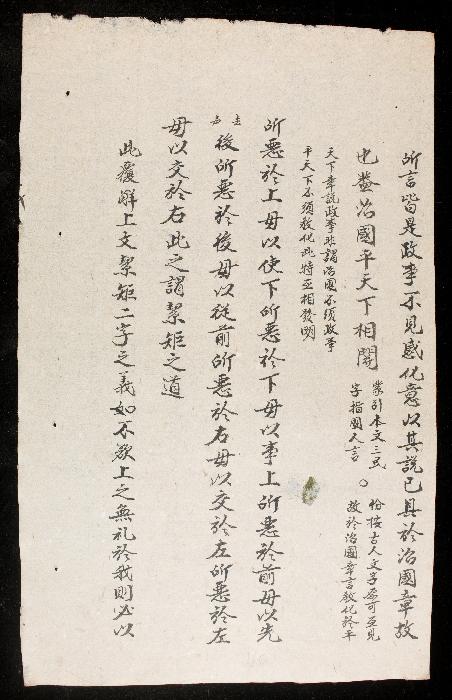 所言皆是政事不見感化意以其說已具於治國章故
也蓋治國平天下相關
蒙引本文三民
字指國人言
○
份按古人文字每可互見
故於治國章言教化於平
天下章說政事非謂治國不須政事
平天下不須教化此特互相發明
所惡於上毋以使下所惡於下毋以事上所惡於前毋以先
後所惡於後毋以從前所惡於右毋以交於左所惡於左
毋以交於右此之謂絜矩之道
此覆解上文絜矩二字之義如不欲上之無礼於我則必以